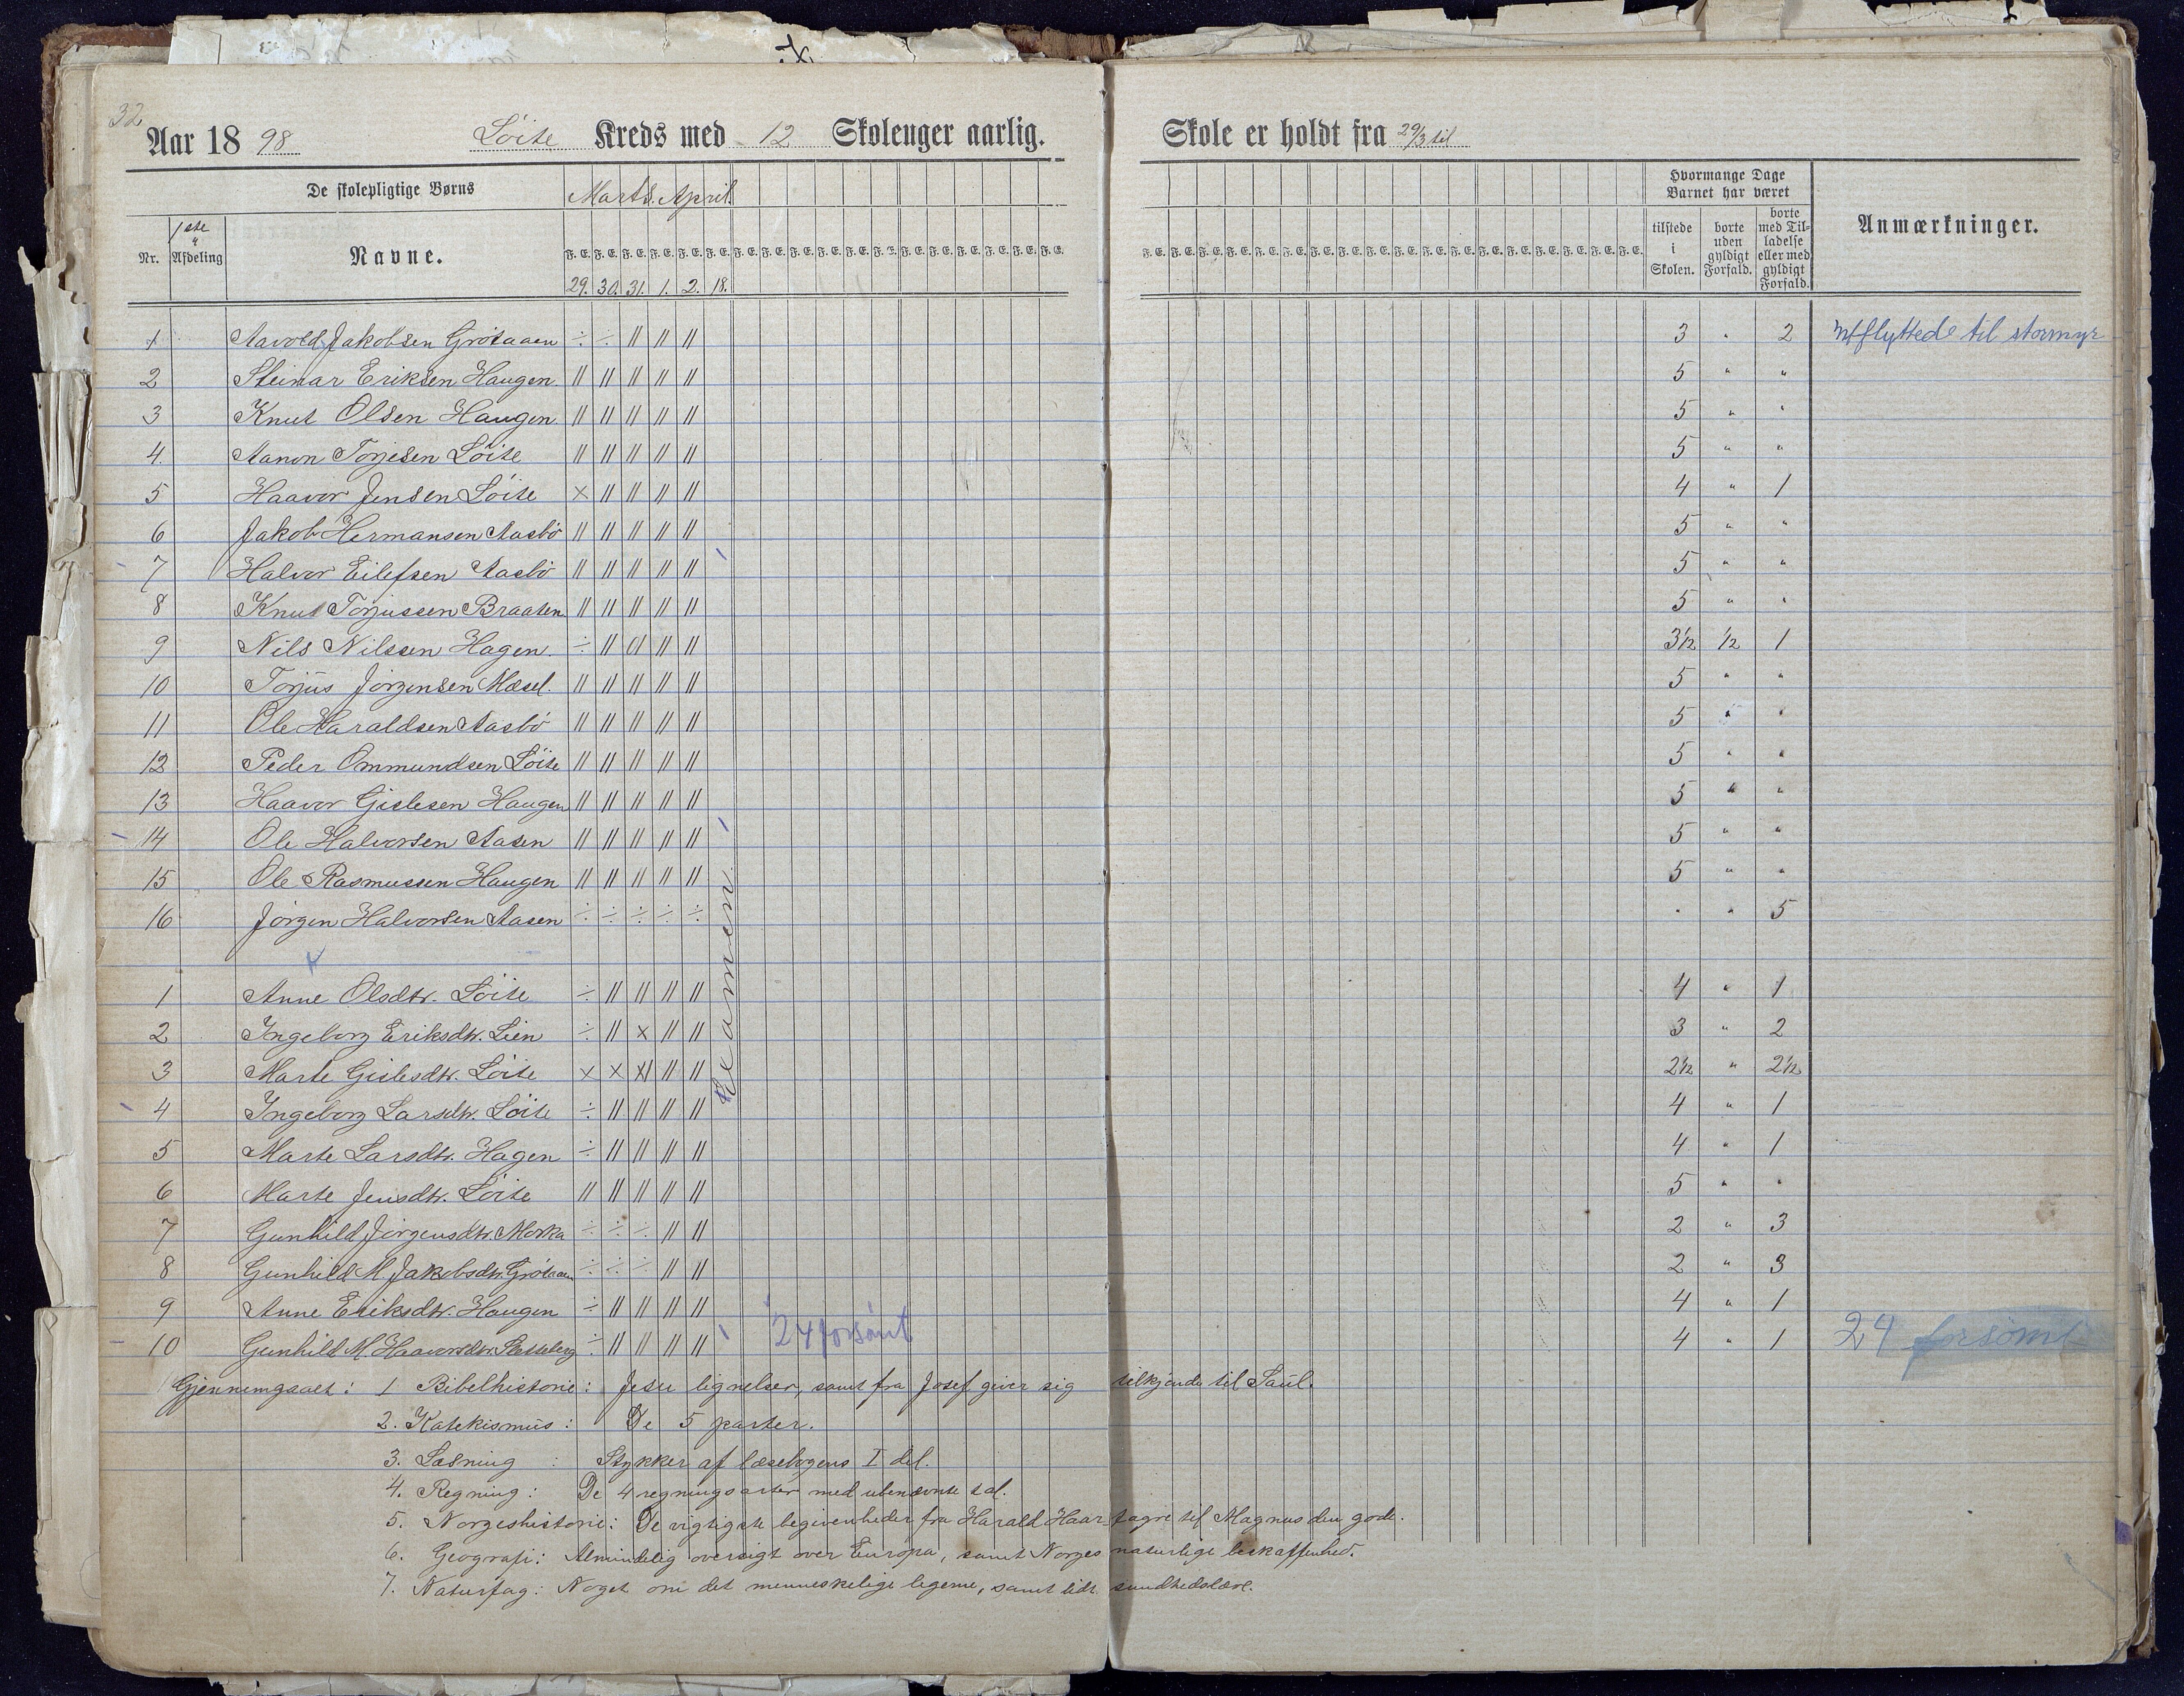 32
Aar 18 98 Löite Kreds med 12 Skoleuger aarlig. Skole er holdt fra 29/3 til
De skolepligtige Børns Marts. April. Hvormange Dage Barnet har været
Nr. 1ste Afdeling Navne. F. E. F. E. F. E. F. E. F. E. F. E. F. E. F. E. F. E. F. E. F. E. F. E. F. E. F. E. F. E. F. E. F. E. F. E. tilstede i Skolen. borte uden gyldigt Forfald. borte med Tilladelse eller med gyldigt Forfald. Anmærkninger.
29. 30. 31. 1. 2. 18.
1 Aavold Jakobsen Grötaaen ÷ ÷ || || || 3 " 2 Utflyttede til stormyr
2 Steinar Eriksen Haugen. || || || || || 5 " "
3 Knut Olsen Haugen. || || || || || 5 " "
4. Aanon Torjesen Löite || || || || || 5 " "
5 Haavor Jensen Löite × || || || || 4 " 1
6 Jakob Hermansen Aasbö || || || || || 5 " "
7 Halvor Eilefsen Aasbö || || || || || 5 " "
8 Knut Torjussen Braaten || || || || || 5 " "
9 Nils Nilssen Hagen. ÷ || 0| || || 3½ ½ 1
10 Torjus Jörgensen Mæsel. || || || || || 5 " "
11 Ole Haraldsen Aasbö || || || || || 5 " "
12 Peder Ommundsen Löite || || || || || 5 " "
13 Haavor Gislesen Haugen || || || || || 5 " "
14 Ole Halvorsen Aasen || || || || || 5 " "
15 Ole Rasmussen Haugen || || || || || 5 " "
16 Jörgen Halvorsen Aasen ÷ ÷ ÷ ÷ ÷ " " 5
Examen
1 Anne Olsdtr. Löite ÷ || || || || 4 " 1
2 Ingeborg Eriksdtr. Lien ÷ || × || || 3 " 2
3 Marte Gislesdtr. Löite × × ×| || || 2½ " 2½
4 Ingeborg Larsdtr. Löite ÷ || || || || 4 " 1
5 Marte Larsdtr. Hagen ÷ || || || || 4 " 1
6 Marte Jensdtr. Löite || || || || || 5 " "
7 Gunhild Jörgensdtr. Morka ÷ ÷ ÷ || || 2 " 3
8 Gunhild M. Jakobsdtr. Grötaaen ÷ ÷ ÷ || || 2 " 3
9 Anne Eriksdtr. Haugen ÷ || || || || 4 " 1
10 Gunhild M. Haavorsdtr. ÷ || || || || 24 forsömt 4 " 1 24 forsömt
Gjennemgaaet: 1 Bibelhistorie: Jesu lignelser, samt fra Josef giver sig tilkjende til Saul.
2. Katekismus: De 5 parter.
3. Læsning : Stykker af læsebogens I del.
4. Regning: De 4 regningsarter med ubenævnte tal.
5. Norgeshistorie: De vigtigste begivenheder fra Harald Haarfagre til Magnus den gode.
6. Geografi: Almindelig oversigt over Europa, samt Norges naturlige beskaffenhed.
7. Naturfag: Noget om det menneskelige legeme, samt lidt sundhedslære.